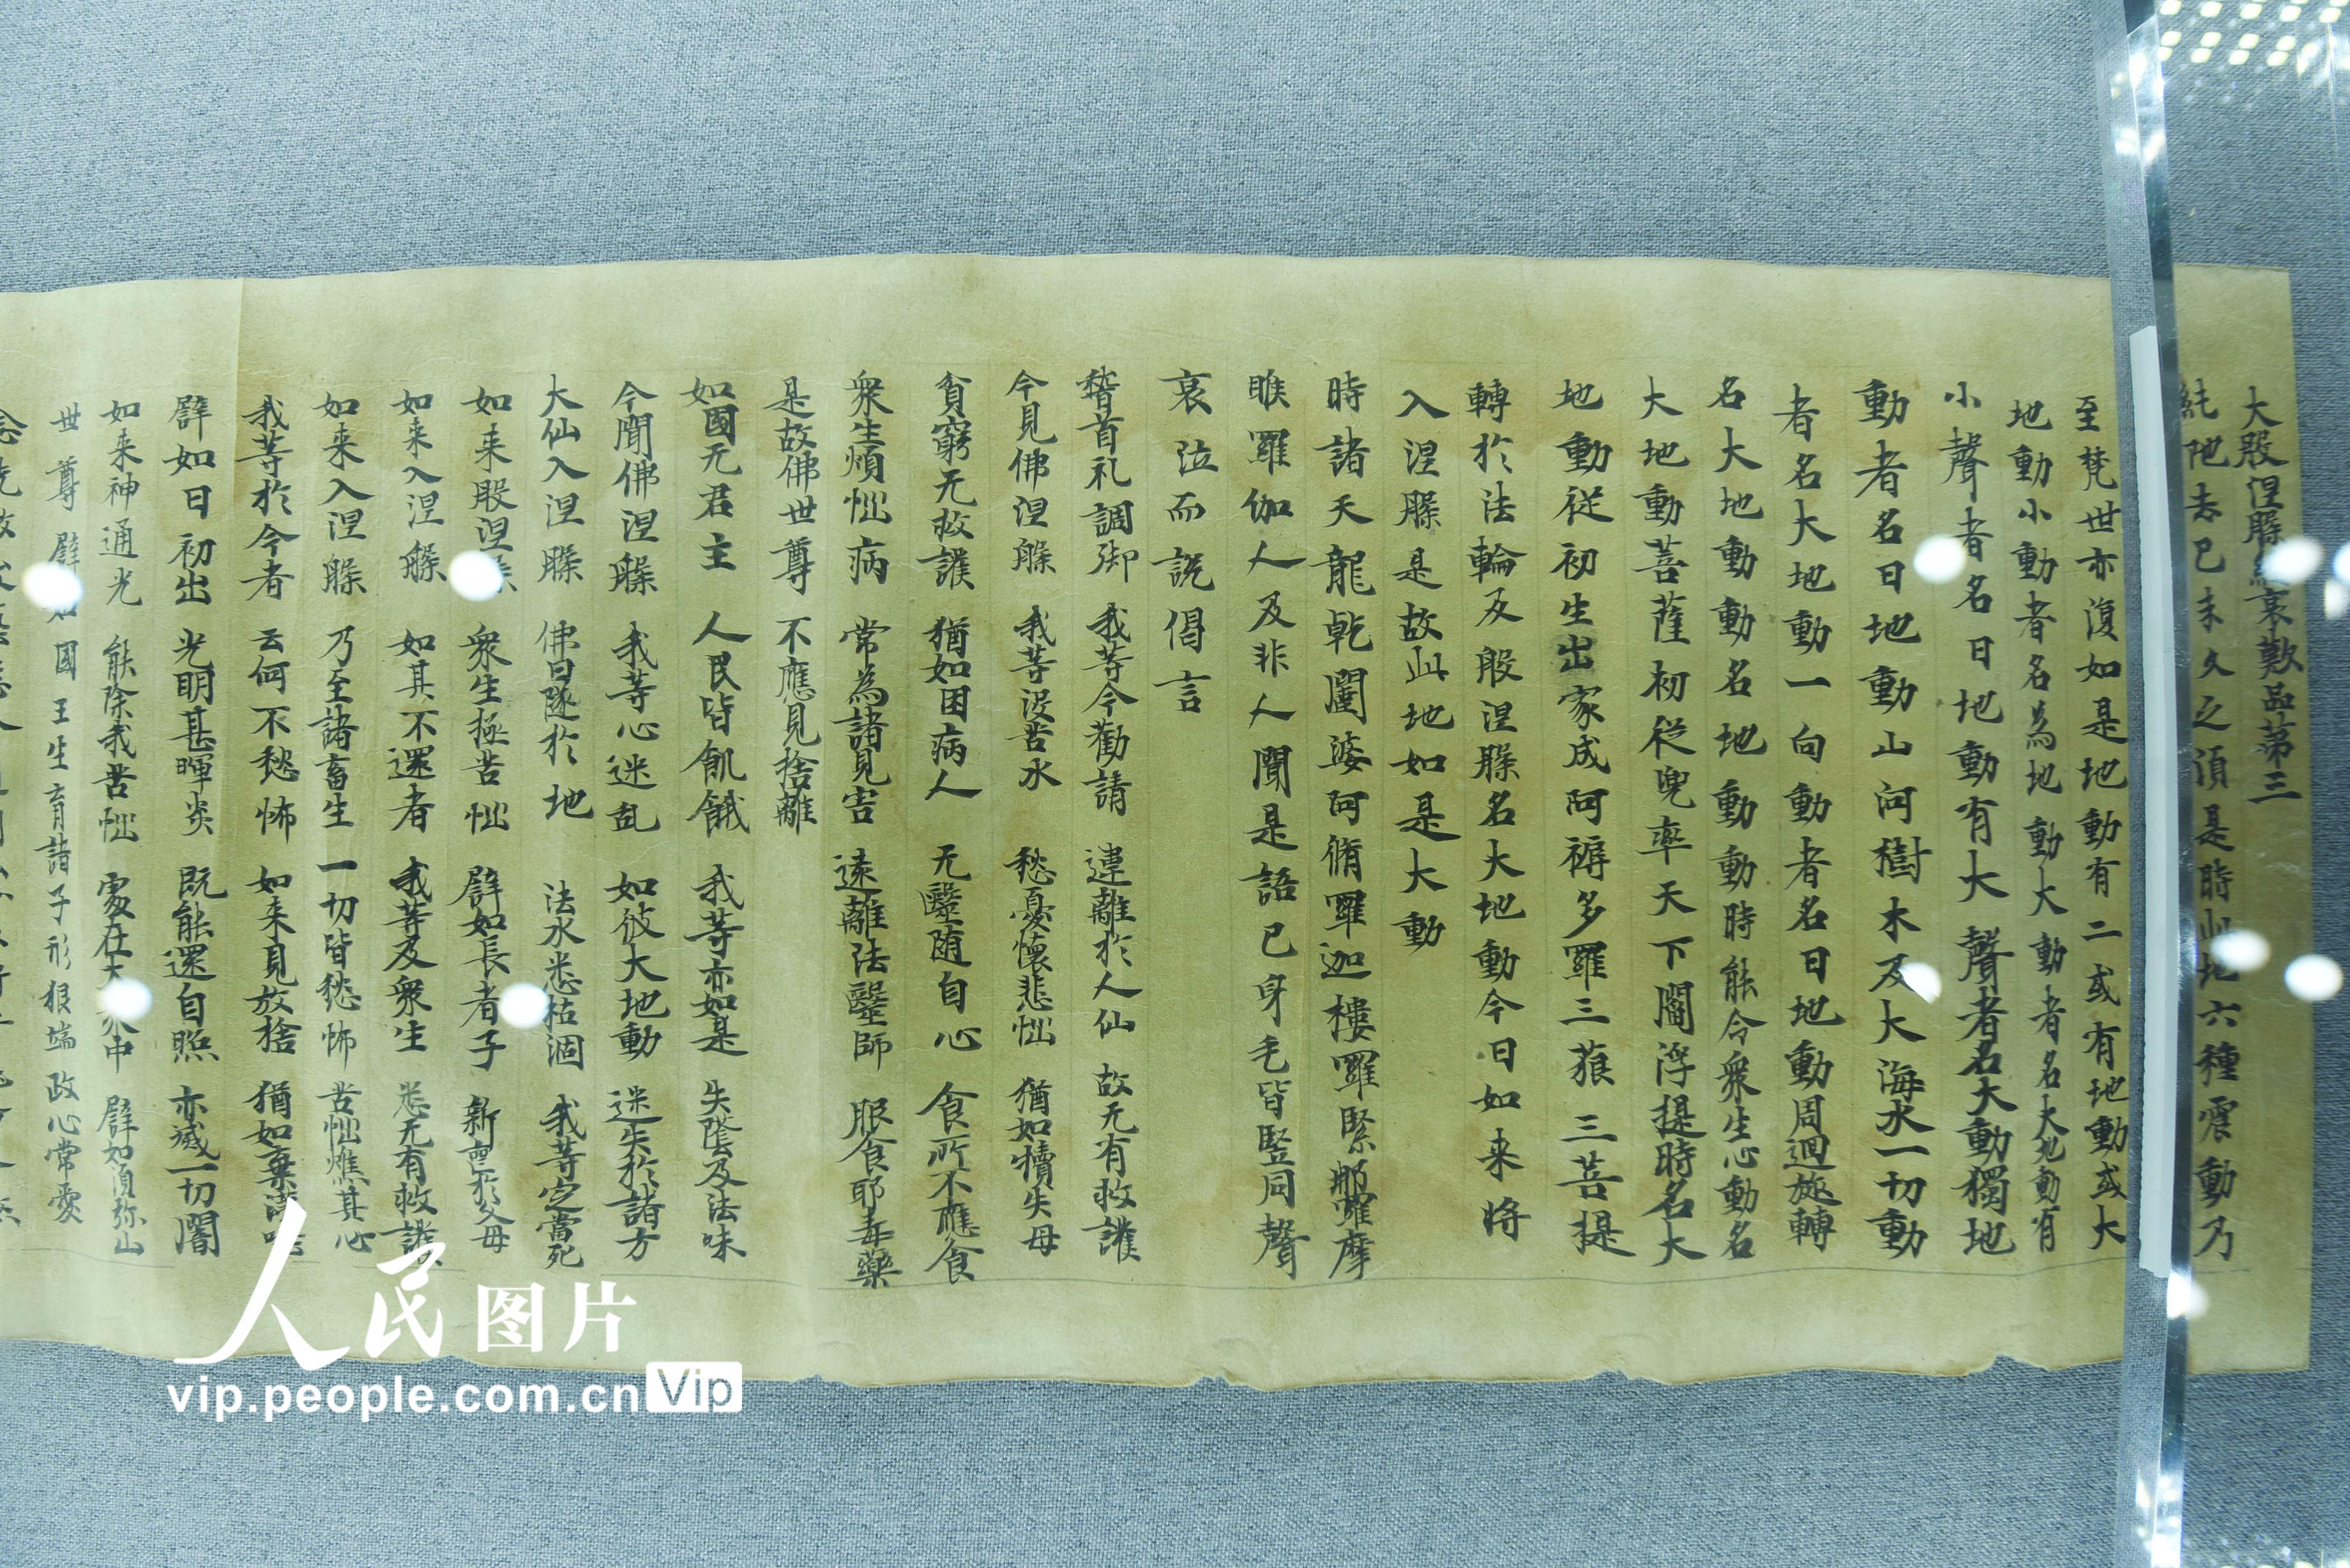 大般涅槃經哀歎品第三
純陁去已未久之頃是時此地六種震動乃
至梵世亦復如是地動有二或有地動或大
地動小動者名為地動大動者名大地動有
小聲者名曰地動有大聲者名大動獨地
動者名曰地動山河樹木及大海水一切動
者名大地動一向動者名曰地動周迴旋轉
名大地動動名地動動時能令衆生心動名
大地動菩薩初從兜率天下閻浮提時名大
地動從初生出家成阿褥多羅三藐三菩提
轉於法輪及般涅槃名大地動今日如来將
入涅槃是故此地如是大動
時諸天龍乾闥婆阿脩羅迦樓羅緊那羅摩
睺羅伽人及非人聞是語已身毛皆竪同聲
哀泣而說偈言
稽首礼調御 我等今勸請 違離於人仙 故无有救護
今見佛涅槃 我等没苦水 愁憂懷悲惱 猶如犢失母
貧窮无救護 猶如困病人 无醫随自心 食所不應食
衆生煩惱病 常為諸見害 遠離法醫師 服食耶毒藥
是故佛世尊 不應見捨離
如國无君主 人民皆飢餓 我等亦如是 失蔭及法味
今聞佛涅槃 我等心迷乱 如彼大地動 迷失於諸方
大仙入涅槃 佛日墜於地 法水悉枯涸 我等定當死
如来般涅槃 衆生極苦惱 譬如長者子 新喪於父母
如来入涅槃 如其不還者 我等及衆生 悉无有救護
如来入涅槃 乃至諸畜生 一切皆愁怖 苦惱燋其心
我等於今者 云何不愁怖 如来見放捨 猶如棄涕唾
譬如日初出 光明甚暉炎 既能還自照 亦滅一切闇
如来神通光 能除我苦惱 處在大衆中 譬如須弥山
世尊 譬如國王生育諸子形狠端政心常愛
人民图片
vip.people.com.cn Vip